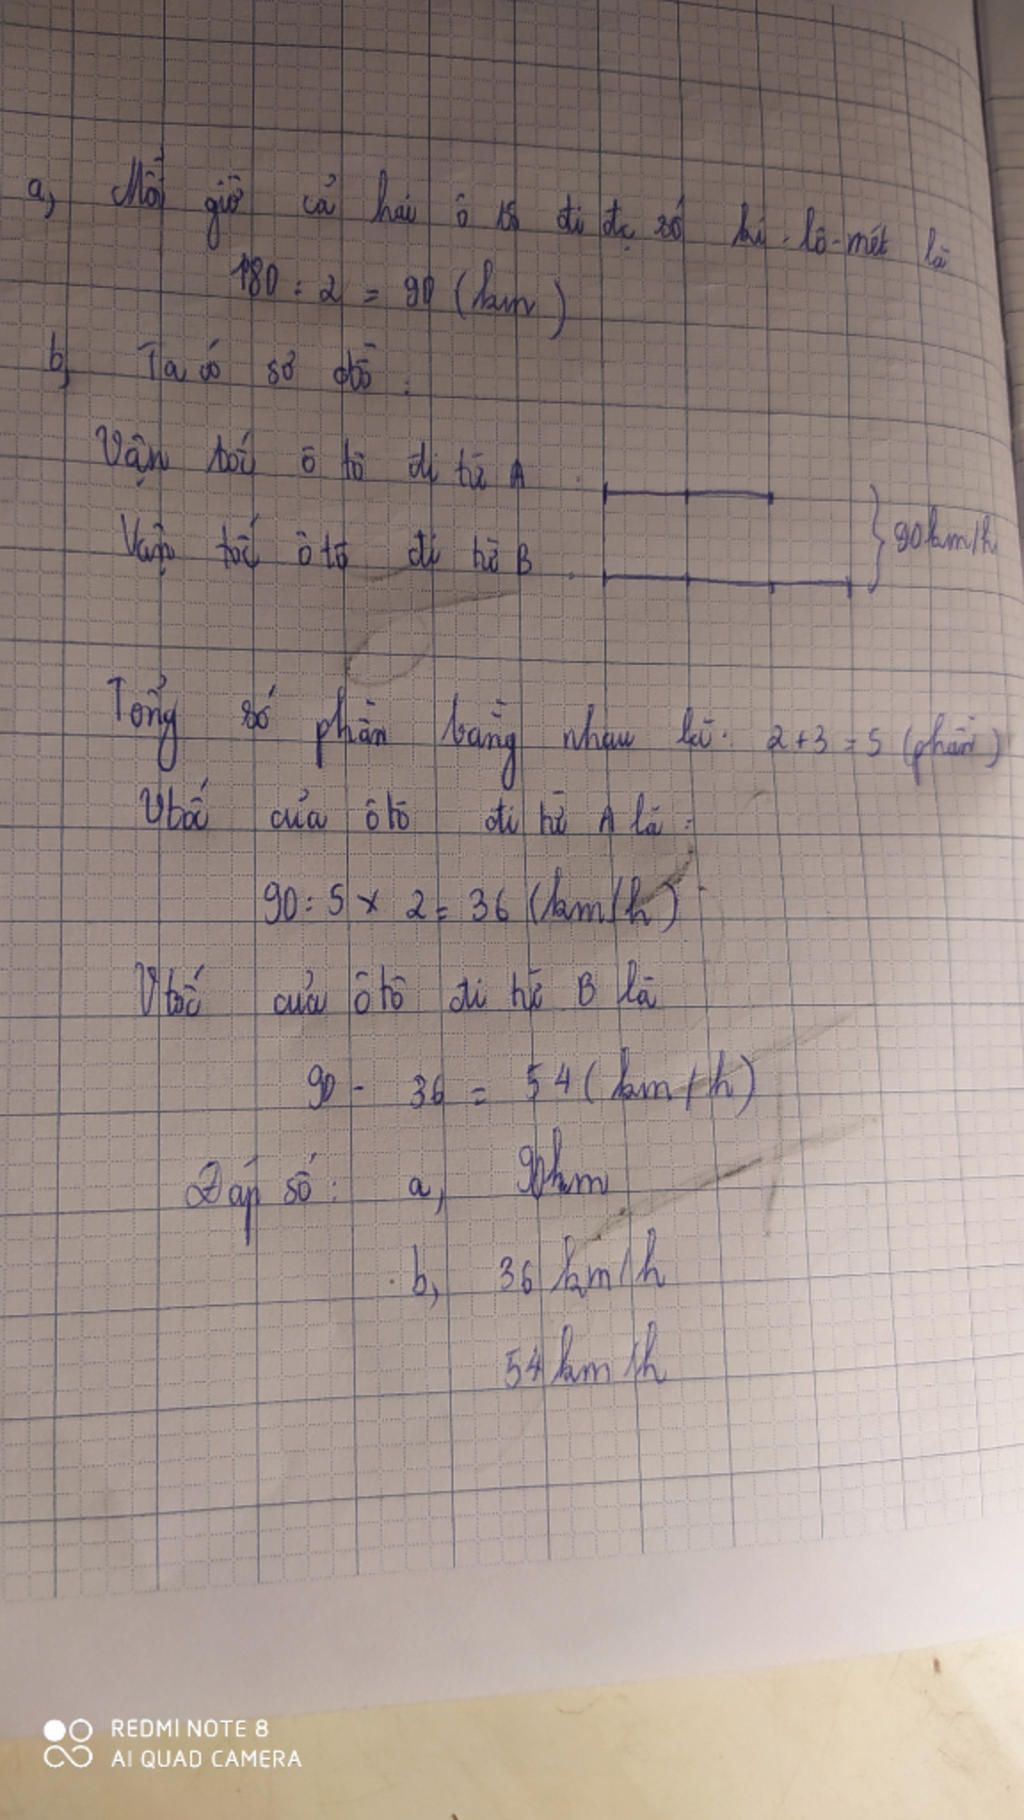 a, Mỗi giờ cả hai ô tô đi đc số ki-lô-mét là
180 : 2 = 90 (km)
b, Ta có sơ đồ :
Vận tốc ô tô đi từ A :
Vận tốc ô tô đi từ B :
90km/h
Tổng số phần bằng nhau là: 2+3=5 (phần)
Vtốc của ôtô đi từ A là :
90 : 5 x 2 = 36 (km/h)
Vtốc của ôtô đi từ B là
90 - 36 = 54 (km/h)
Đáp số : a, 90km
b, 36 km/h
54 km/h
REDMI NOTE 8
AI QUAD CAMERA